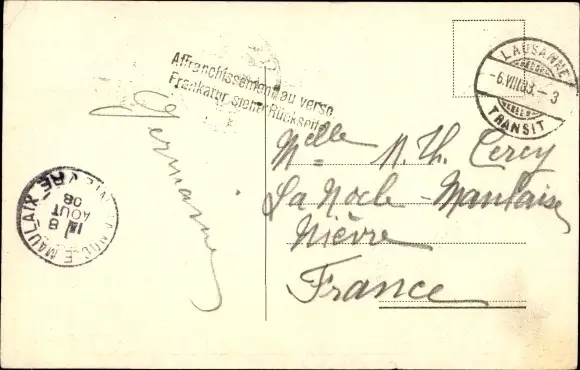 Affranchissement au verso
Frankatur siehe Rückseite
LAUSANNE
-6.VIII.08.-3
TRANSIT
Germaine
Mlle M. Th. Cercy
La Nocle-Maulaix
Nièvre
France
LA NOCLE MAULAIX NIÈVRE
8
AOUT
08